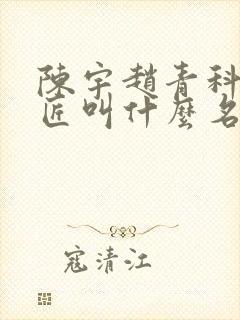 陳宇趙青科
匠叫什麼名
寇清江